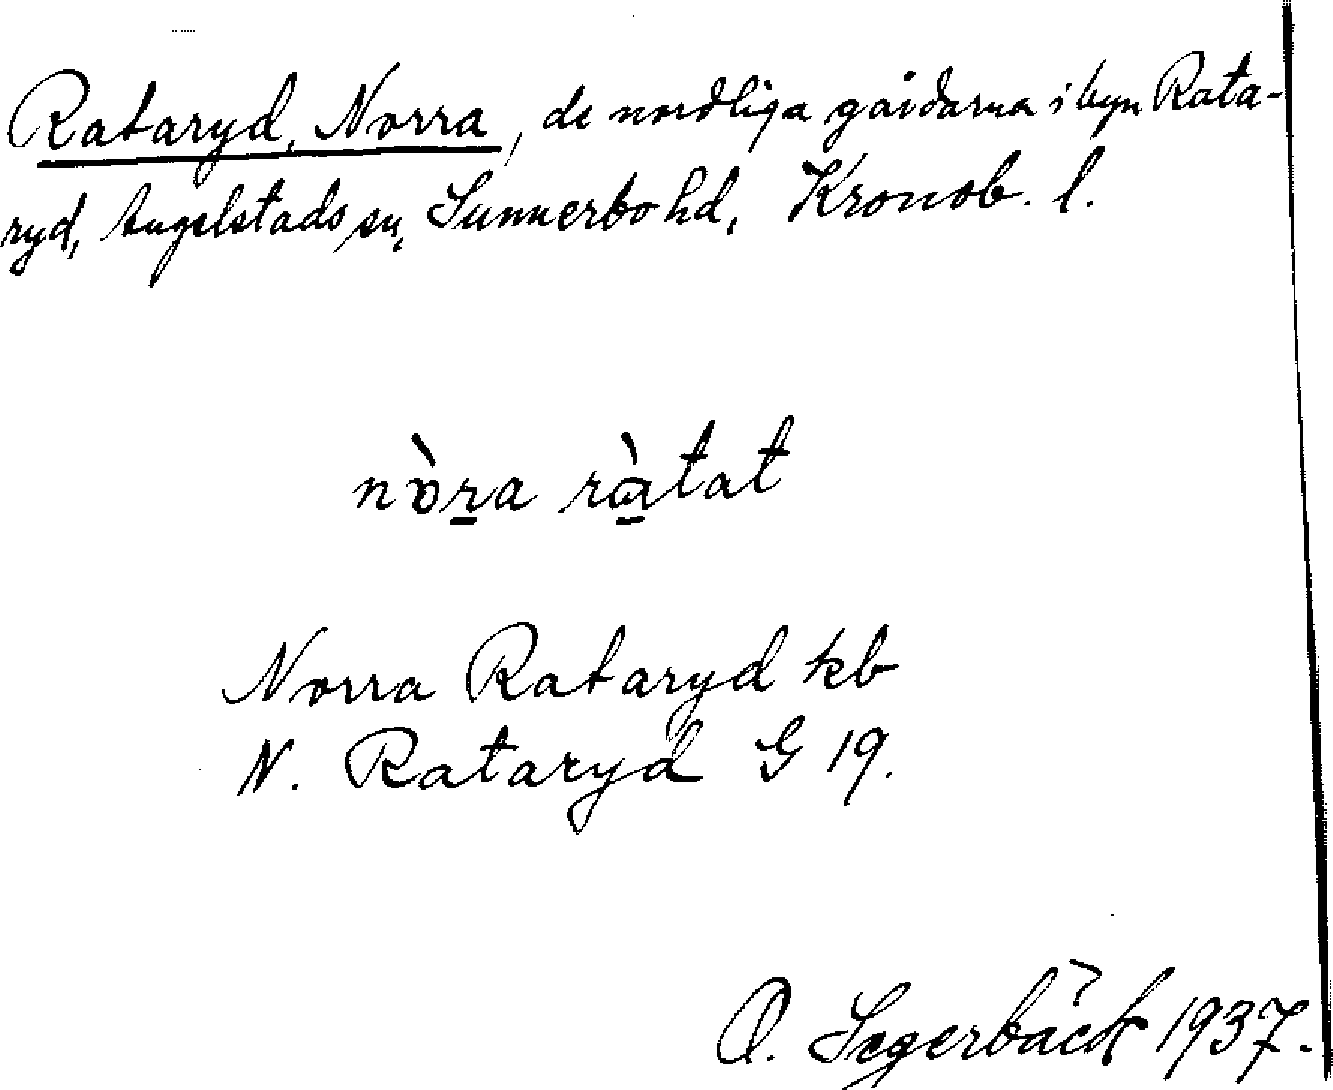 Rataryd, Norra, de nordliga gårdarna i byn Rata-
ryd, Angelstads sn, Sunnerbo hd, Kronob. l.
nòra ràtat
Norra Rataryd kb
N. Rataryd G 19.
O. Segerbäck 1937.